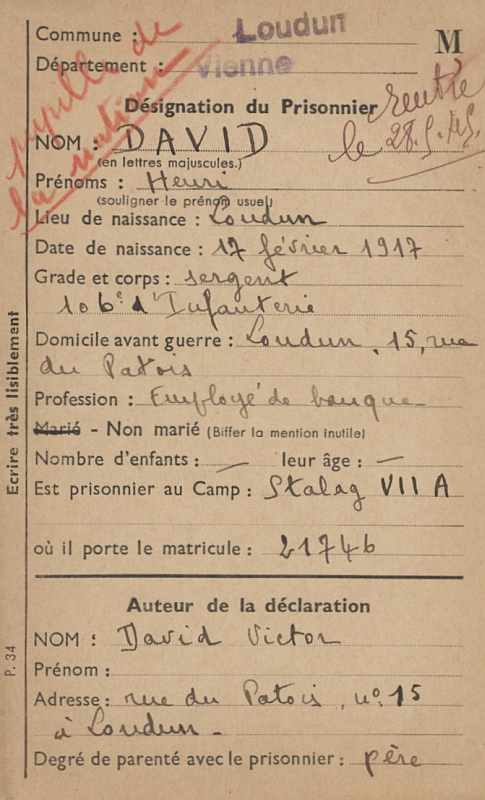 Commune : Loudun
M
Département : Vienne
pupille de
la nation
Désignation du Prisonnier
rentré
le 28.5.45.
NOM : DAVID
(en lettres majuscules.)
Prénoms : Henri
(souligner le prénom usuel)
Lieu de naissance : Loudun
Date de naissance : 17 février 1917
Grade et corps : sergent
106e d'Infanterie
Domicile avant guerre : Loudun, 15, rue
du Patois
Profession : Employé de banque
Marié - Non marié (Biffer la mention inutile)
Nombre d'enfants : — leur âge : —
Est prisonnier au Camp : Stalag VII A
où il porte le matricule : 21746
Auteur de la déclaration
NOM : David Victor
Prénom :
Adresse : rue du Patois, no 15
à Loudun -
Degré de parenté avec le prisonnier : père
Ecrire très lisiblement
P. 34